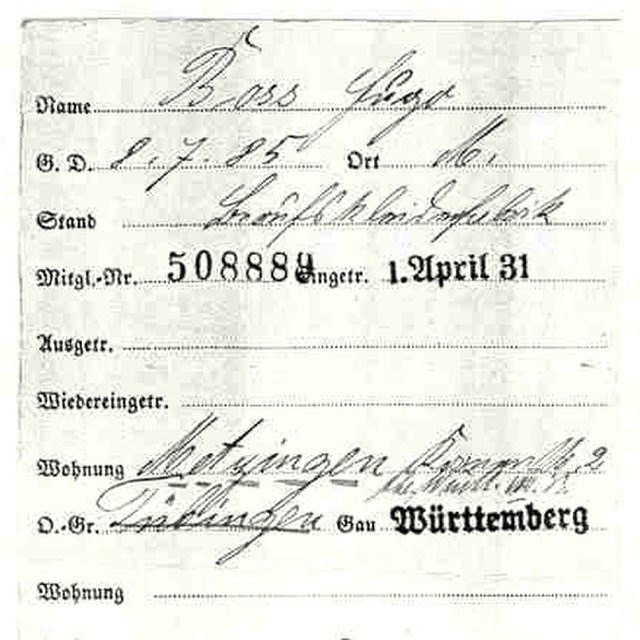 Name Boss Hugo
G. D. 8. 7. 85 Ort M.
Stand Berufskleiderfabrik
Mitgl.-Nr. 508889 Eingetr. 1. April 31
Ausgetr.
Wiedereingetr.
Wohnung Metzingen
O.-Gr. Tübingen Gau Württemberg
Wohnung